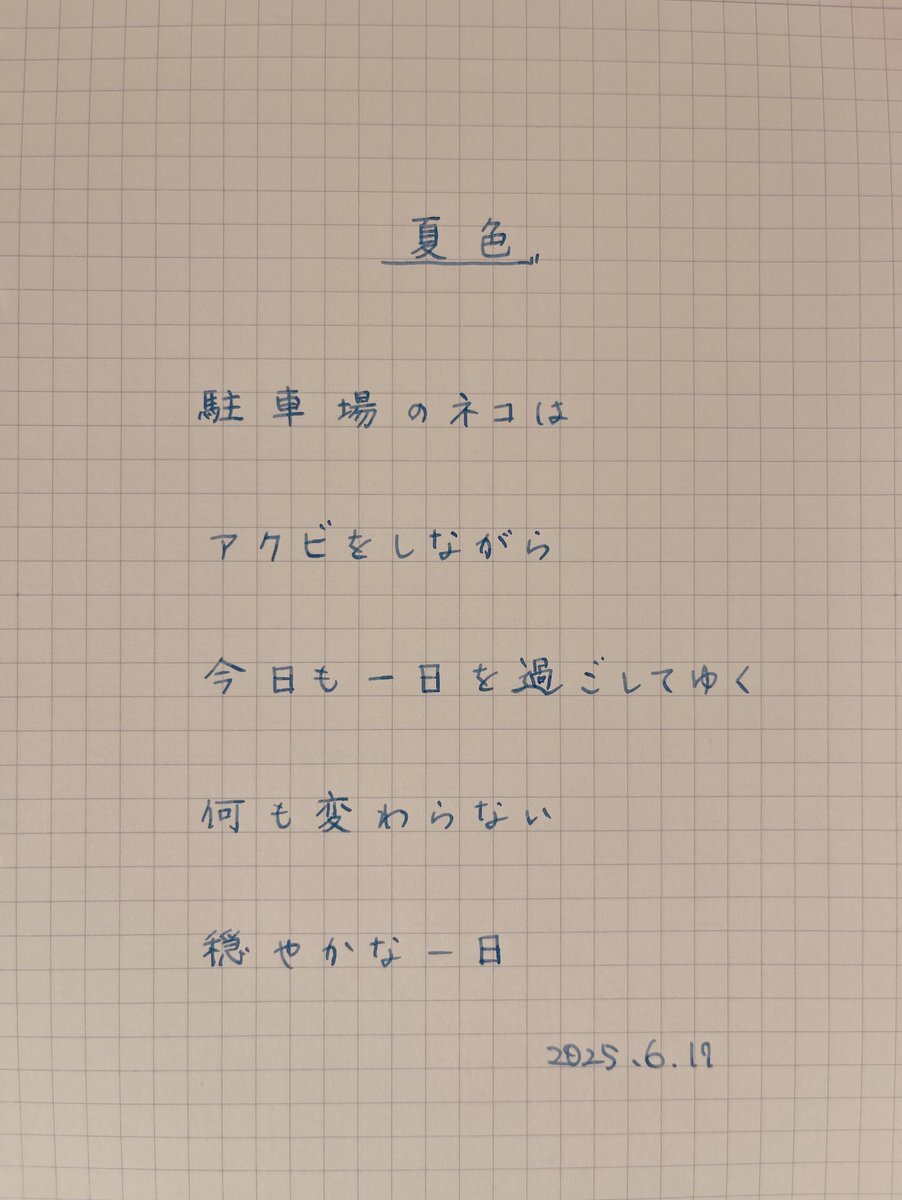 夏色
駐車場のネコは
アクビをしながら
今日も一日を過ごしてゆく
何も変わらない
穏やかな一日
2025.6.17